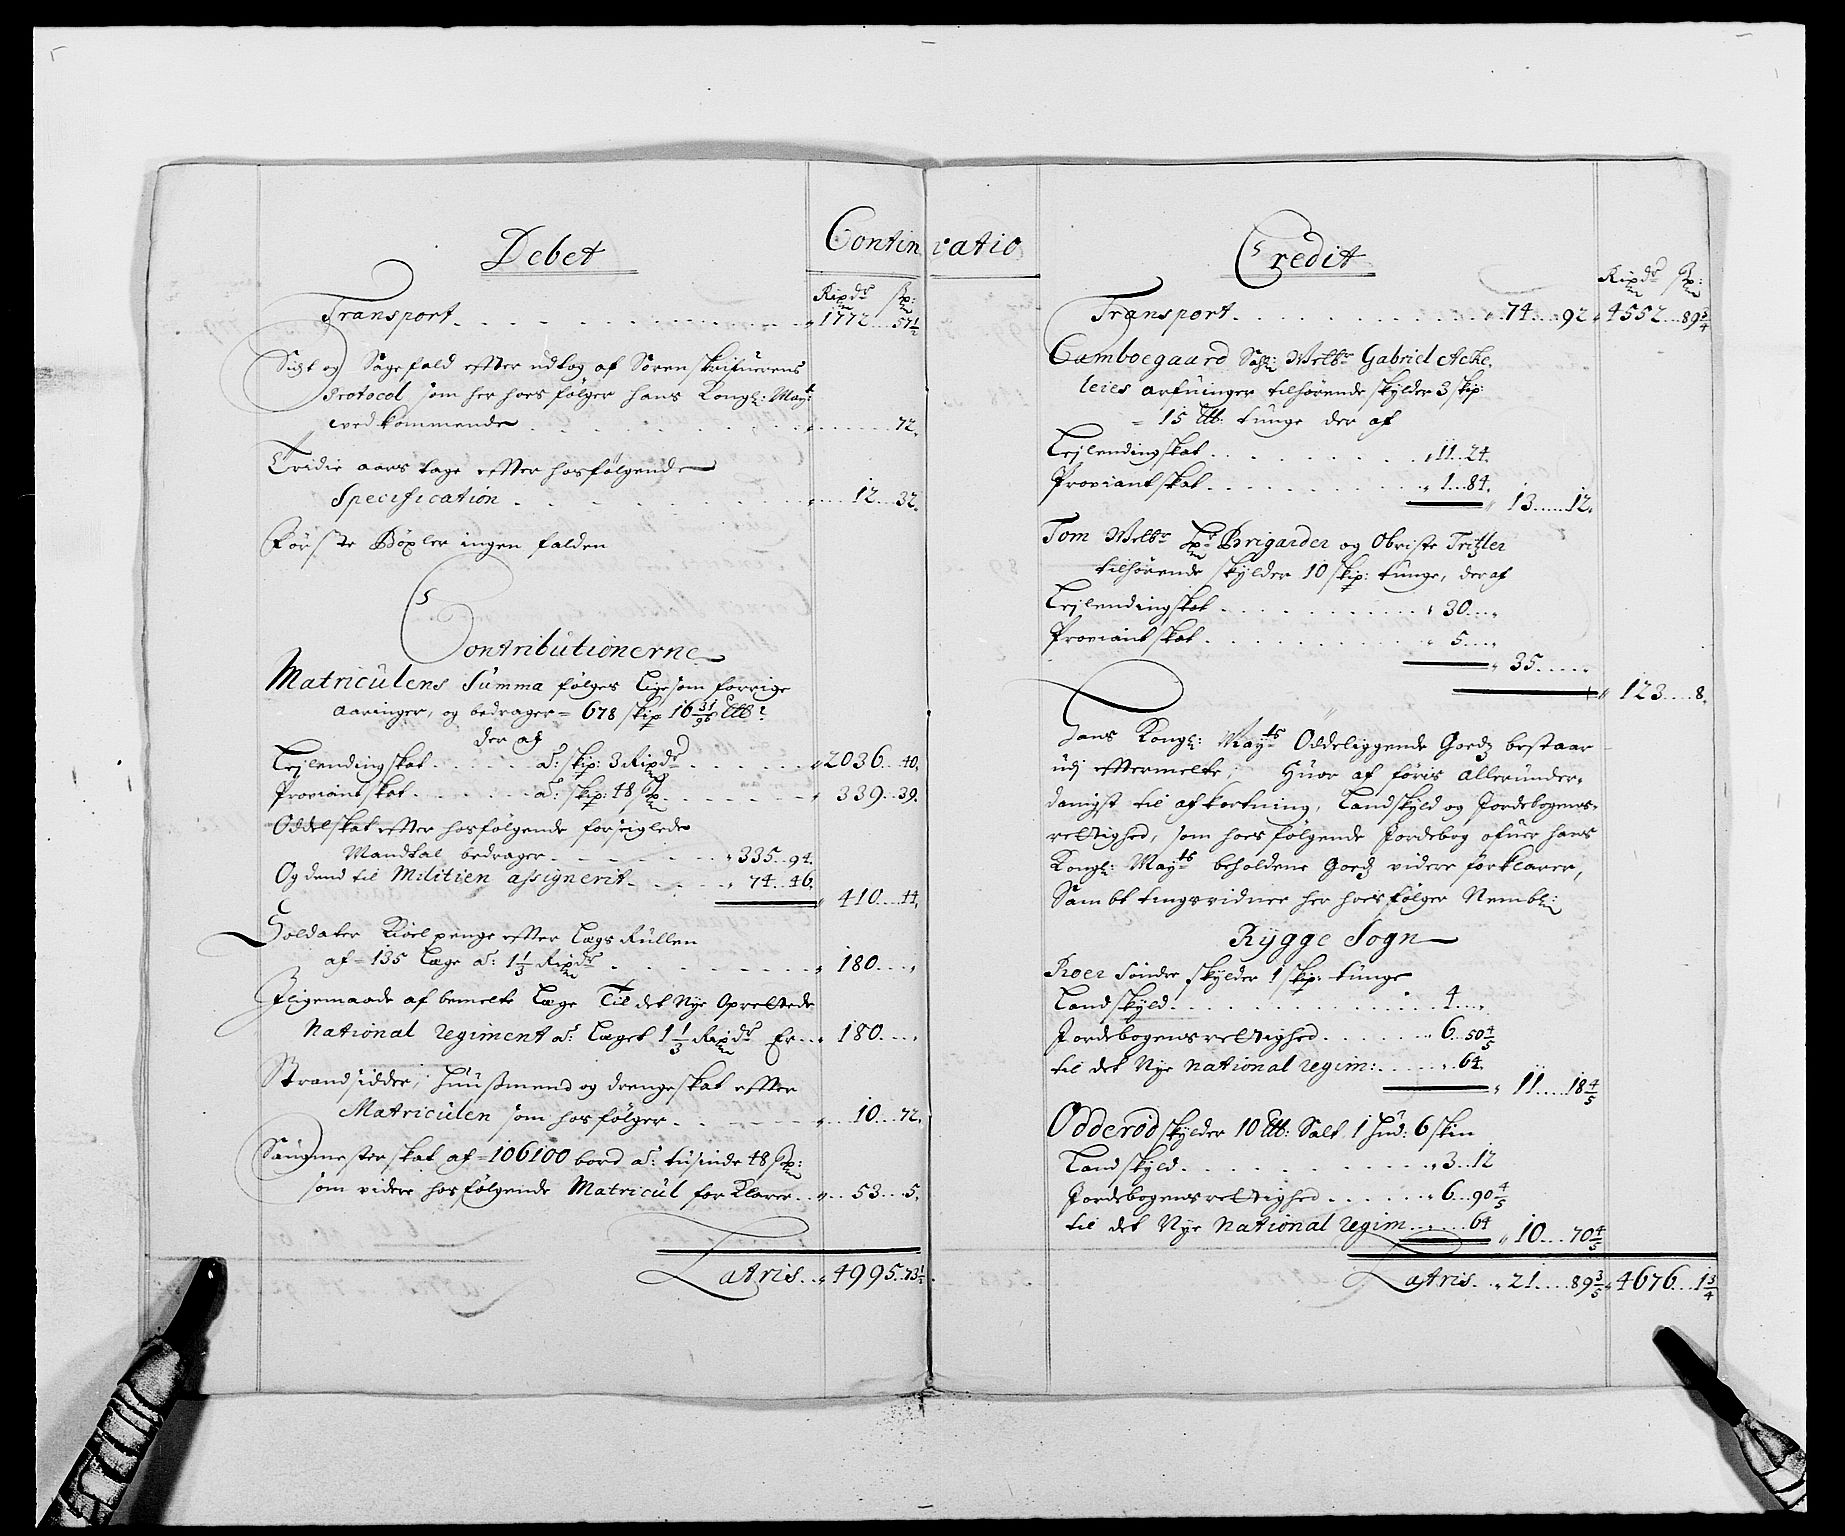 Continuatio
Debet
Ripdr sk:
Transport . . . 1772 . . 57 1/2
Sigt og Sagefald efter udtog af Sørenskrifuerens
Protocol som her hoes følger hans Kongl: Mayt:
vedkommende . . . 72.
Tridie aars tage efter hosfølgende
Specification . . . 12 . . 32.
Førſte Bøxler ingen falden
Contributionerne
Matriculens Summa følges ligesom forrige
aaringer, og bedrager = 678 skip 16 31/96 Lb:
der af
Lejlendingskat . . . a: skip: 3 Ripdr . . . 2036 . . 40.
Proviantskat . . . a: skip: 48 sk . . . 339 . . 39.
Oddelskat efter hosfølgende forseiglede
Mandtal bedrager . . . 335 . . 94.
Og dend til Militien assignerit . . . 74 . . 46.
410 . . 44.
Soldater Kioel penge efter Lægs Rullen
af = 135 Læge a: 1 1/3 Ripdr . . . 180 . . .
Jligemaade af bemelte Læge Til det Nye Oprettede
National Regiment a: Læget 1 1/3 Ripdr Er . . 180 . . .
Strandsidder, Huusmend og drengeskat efter
Matriculen som hosfølger . . . 10 . . 72.
Saugmesterskat af = 106100 bord a: tusinde 48 sk:
som videre hosfølgende Matricul forKlarer . . 53 . . 5.
Latris . . 4995 . 73 1/2
Credit
Ripdr sk:
Transport . . . 74 . . 92 4552 . . 89 3/4
Camboegaard Sahl: Welbr Gabriel Acke,
leies arfuinger tilhørende skylder 3 skip:
= 15 Lb: tunge der af
Lejlendingskat . . . 11 . . 24.
Proviantskat . . . 1 . . 84.
13 . . . 12.
Tom Welbr Hr Brigarder og Obriste Tritzler
tilhørende skylder 10 skip: tunge, der af
Lejlendingskat . . . 30 . . .
Proviantskat . . . 5 . . .
35 . . .
123 . . . 8.
Hans Kongl: Mayts Oddeliggende Goedz bestaar
udj eftermelte; Huor af føris allerunder,
danigst til afkortning, Landskyld og Jordebogens,
rettighed, som hoes følgende Jordebog ofuer hans
Kongl: Mayts beholdene Goedz videre forklarer,
Sambt tingsvidner her hoes følger Nembl:
Rygge Sogn
Roer Søndre skylder 1 skip: tunge
Landskyld . . . 4 . . .
Jordebogensrettighed . . . 6 . . 50 4/5
til det Nye National Regim: . . . 64.
11 . . . 18 4/5
Odderød skylder 10 Lb: Salt 1 Hud: 6 skin
Landskyld . . . 3 . . 12
Jordebogensrettighed . . . 6 . . 90 4/5
til det Nye National Regim . . . 64
10 . . . 70 4/5
Latris . . 21 . . . 89 3/5 4676 . . 1 3/4